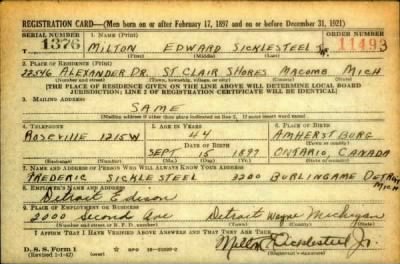 REGISTRATION CARD—(Men born on or after February 17, 1897 and on or before December 31, 1921)
SERIAL NUMBER 1. NAME (Print) ORDER NUMBER
1376 MILTON EDWARD SICKLESTEEL JR. 11493
(First) (Middle) (Last)
2. PLACE OF RESIDENCE (Print)
22546 ALEXANDER DR. ST CLAIR SHORES MACOMB MICH
(Number and street) (Town, township, village, or city) (County) (State)
[THE PLACE OF RESIDENCE GIVEN ON THE LINE ABOVE WILL DETERMINE LOCAL BOARD
JURISDICTION; LINE 2 OF REGISTRATION CERTIFICATE WILL BE IDENTICAL]
3. MAILING ADDRESS
SAME
[Mailing address if other than place indicated on line 2. If same insert word same]
4. TELEPHONE 5. AGE IN YEARS 6. PLACE OF BIRTH
ROSEVILLE 1215W 44 AMHERSTBURG
DATE OF BIRTH (Town or county)
SEPT 15 1897 ONTARIO, CANADA
(Exchange) (Number) (Mo.) (Day) (Yr.) (State or country)
7. NAME AND ADDRESS OF PERSON WHO WILL ALWAYS KNOW YOUR ADDRESS
FREDERIC SICKLESTEEL 2200 BURLINGAME DETROIT
MICH
8. EMPLOYER'S NAME AND ADDRESS
Detroit Edison
9. PLACE OF EMPLOYMENT OR BUSINESS
2000 Second Ave Detroit Wayne Michigan
(Number and street or R. F. D. number) (Town) (County) (State)
I AFFIRM THAT I HAVE VERIFIED ABOVE ANSWERS AND THAT THEY ARE TRUE.
D. S. S. Form 1 Milton E Sicklesteel Jr.
(Revised 1-1-42) (over) (Registrant's signature)